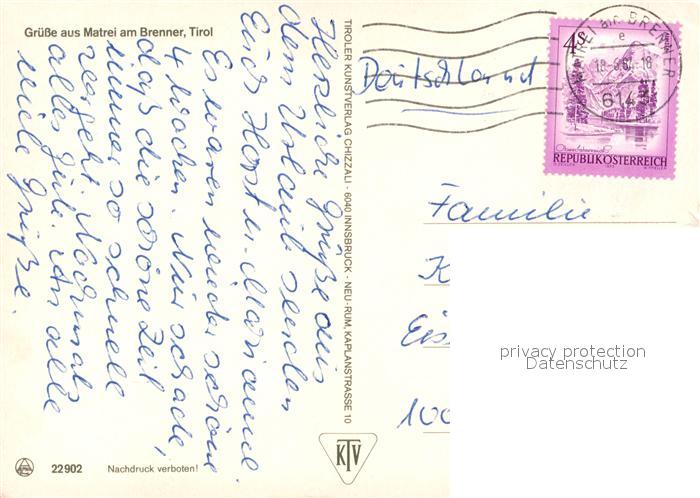 Grüße aus Matrei am Brenner, Tirol
Herzliche Grüße aus
dem Urlaub senden
Euch Horst u. Marianne.
Es waren wieder schöne
4 Wochen. Nur schade,
daß die schöne Zeit
immer so schnell
vergeht. Nochmals
alles Gute. An alle
viele Grüße.
22902
Nachdruck verboten!
TIROLER KUNSTVERLAG CHIZZALI - 6040 INNSBRUCK - NEU-RUM, KAPLANSTRASSE 10
KTV
Deutschland
MATREI am BRENNER
e
614
4S
REPUBLIK ÖSTERREICH
Familie
K
Eis
100
privacy protection
Datenschutz